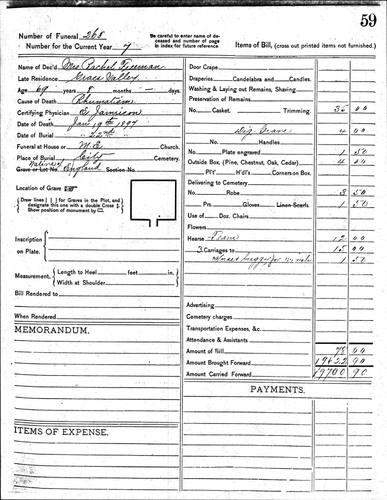 59
Number of Funeral 268
Number for the Current Year 7
Be careful to enter name of deceased and number of page in index for future reference
Items of Bill, (cross out printed items not furnished.)
Name of Dec'd Mrs Rachel Freeman
Late Residence Grass Valley
Age 69 years 8 months - days.
Cause of Death Rheumatism
Certifying Physician E Jamieson
Date of Death Jan 19th 1897
Date of Burial " 22nd "
Funeral at House or M.E. Church.
Place of Burial City Cemetery.
Native of England
Grave or Lot No. Section No.
Location of Grave
Draw lines for Graves in the Plot, and designate this one with a double Cross
Show position of monument by
Inscription on Plate.
Measurement. Length to Heel feet in.
Width at Shoulder
Bill Rendered to
When Rendered
MEMORANDUM.
ITEMS OF EXPENSE.
Door Crape
Draperies Candelabra and Candles.
Washing & Laying out Remains, Shaving
Preservation of Remains
No. Casket. Trimming. 35 00
Dig Grave 4 00
No. Handles
No. Plate engraved 1 50
Outside Box (Pine, Chestnut, Oak, Cedar) 4 00
Pl't H'dl's Corners on Box.
Delivering to Cemetery
No. Robe 3 50
Prs. Gloves Linen Scarfs 1 50
Use of Doz. Chairs
Flowers
Hearse Team 12 00
3 Carriages to 15 00
1 50
Advertising
Cemetery charges
Transportation Expenses, &c.
Attendance & Assistants
Amount of Bill 78 00
Amount Brought Forward 19622 90
Amount Carried Forward 19700 90
PAYMENTS.